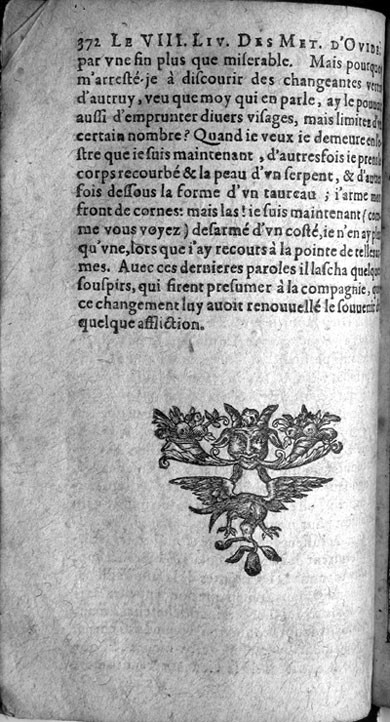 372 LE VIII. LIV. DES MET. D'OVIDE
par vne fin plus que miserable. Mais pourquoy
m'arresté-je à discourir des changeantes
d'autruy, veu que moy qui en parle, ay le pouuoir
aussi d'emprunter diuers visages, mais limitez
certain nombre? Quand ie veux ie demeure
stre que ie suis maintenant, d'autresfois ie
corps recourbé & la peau d'vn serpent, & d'autre
fois dessous la forme d'vn taureau; i'arme mon
front de cornes: mais las! ie suis maintenant (com
me vous voyez) desarmé d'vn costé, ie n'en ay plus
qu'vne, lors que i'ay recours à la pointe de telles
mes. Auec ces dernieres paroles il lascha quelques
souspirs, qui firent presumer à la compagnie, que
ce changement luy auoit renouuellé le
quelque affliction.